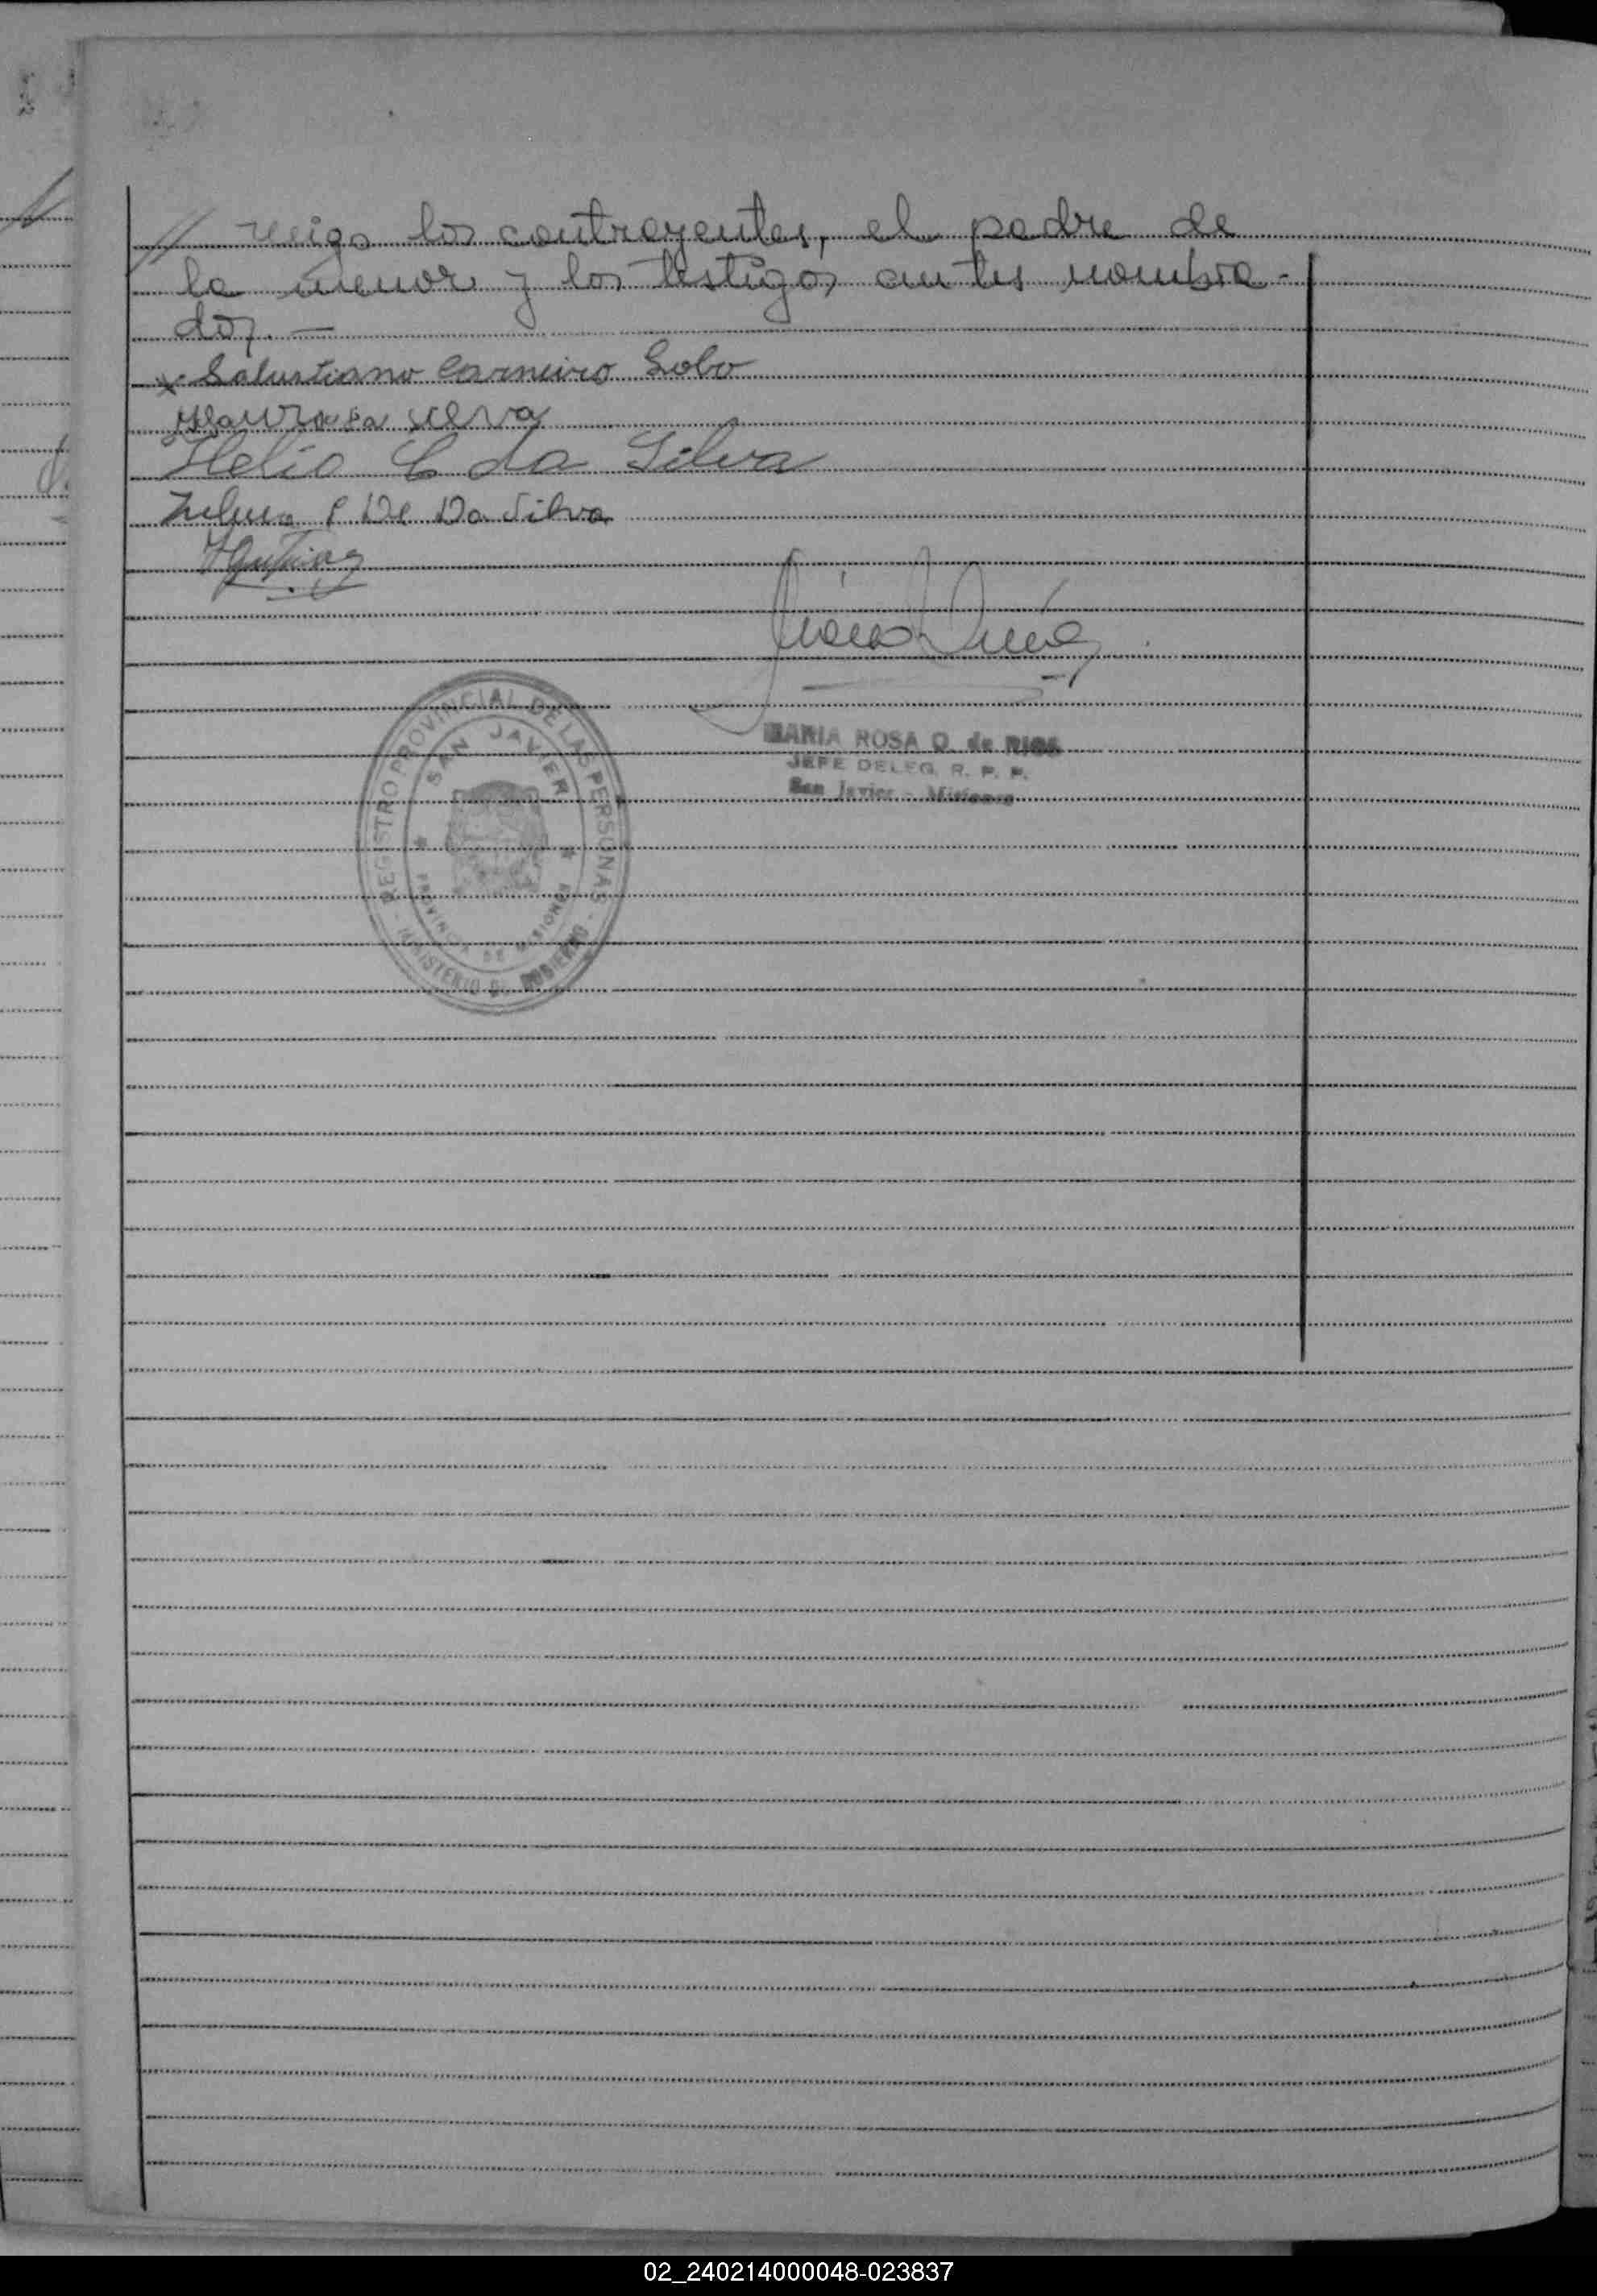 // migo los contrayentes, el padre de
la menor y los testigos antes nombra-
dos.—
x Salustiano Carneiro Lobo
da silva
Helio C da Silva
Zulma C De Da Silva
MARIA ROSA O. de RIOS
JEFE DELEG. R. P. P.
San Javier - Misiones
REGISTRO PROVINCIAL DE LAS PERSONAS
SAN JAVIER
PROVINCIA DE MISIONES
MINISTERIO DE GOBIERNO
02_240214000048-023837